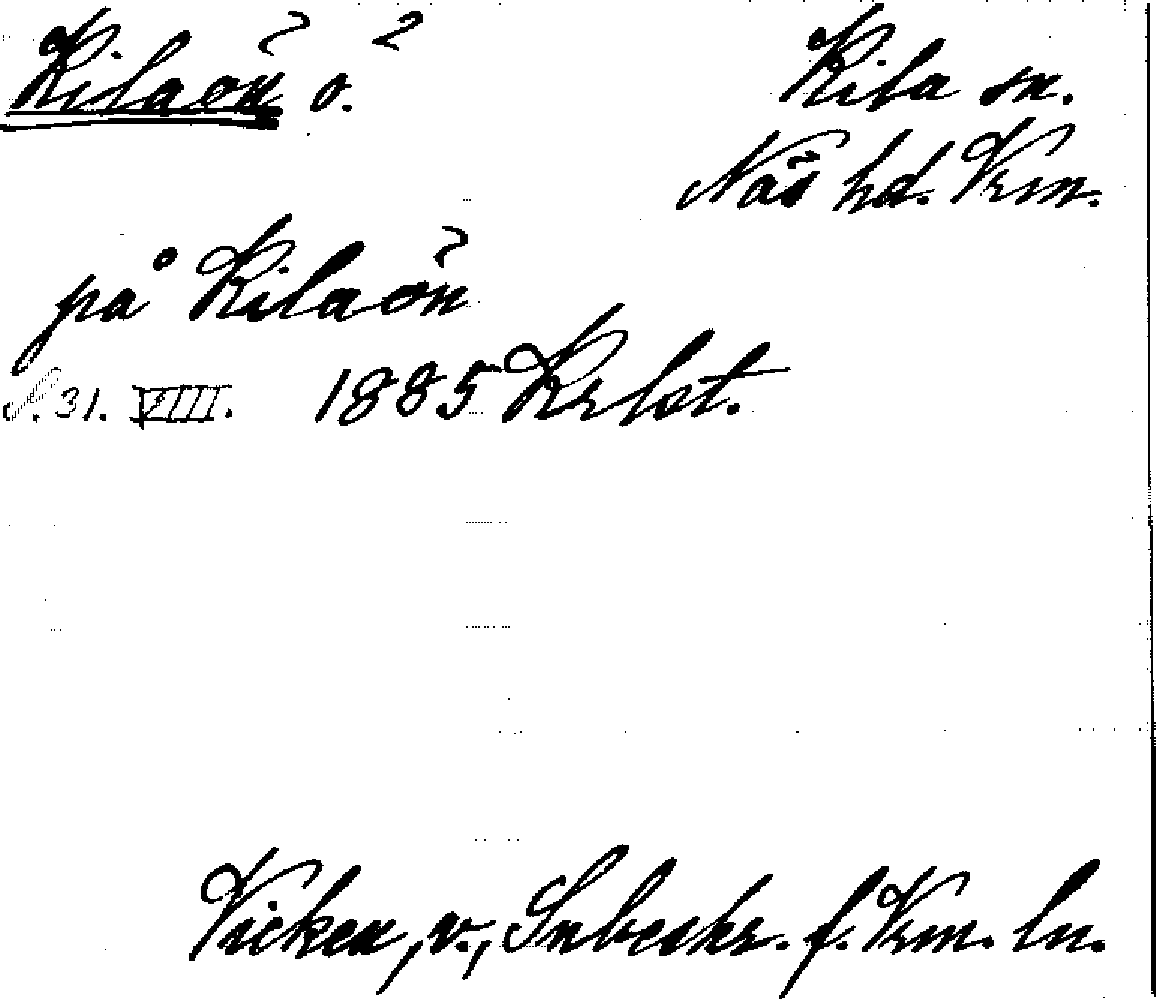 Kilaön ö. Kila sn.
Näs hd. Vrm.
på Kilaön
N. 31. VIII. 1885 Krbst.
Vicken, v., Snbeskr. f. Vrm. ln.